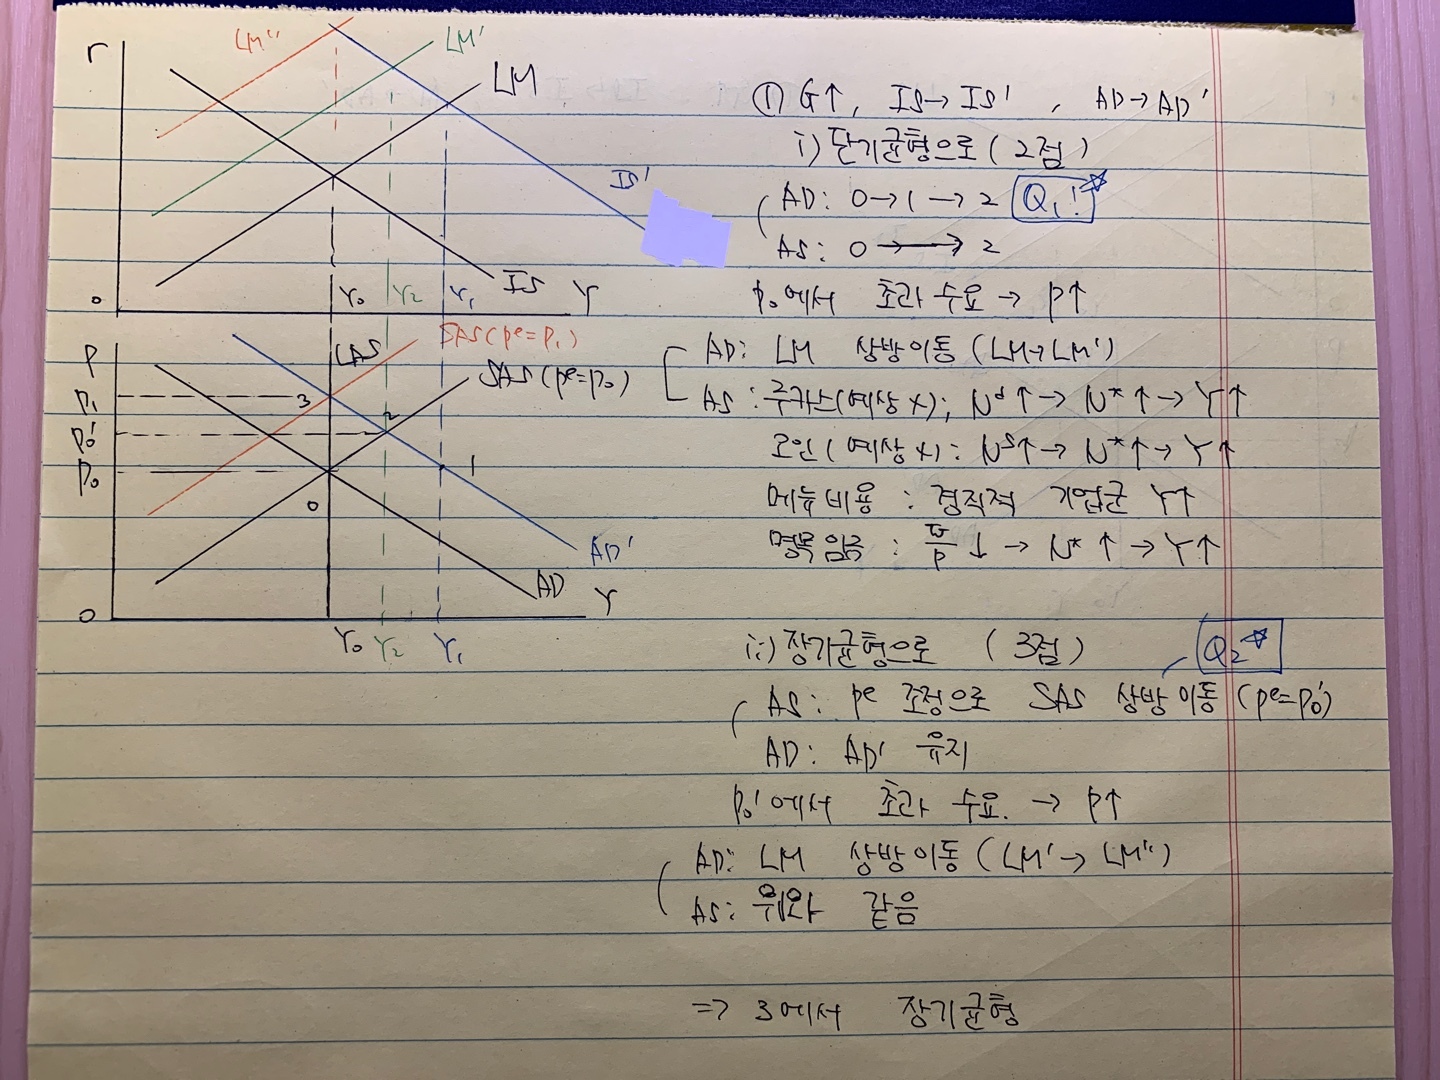 r
LM''
LM'
LM
IS'
IS
Y₀
Y₂
Y₁
Y
0
P
P₁
P₀'
P₀
LAS
SAS(pᵉ=P₁)
SAS(pᵉ=p₀)
3
2
1
0
AD'
AD
Y
0
Y₀
Y₂
Y₁
① G↑, IS→IS' , AD→AD'
i) 단기균형으로 (2점)
AD: 0→1→2 Q₁!
AS: 0→2
P₀에서 초과 수요 → P↑
AD: LM 상방이동 (LM→LM')
AS: 루카스(예상x); Nᵈ↑→ N*↑→ Y↑
노인(예상x): Nˢ↑→ N*↑→ Y↑
메뉴비용 : 경직적 기업군 Y↑
명목임금 : W̄/P ↓ → N*↑→ Y↑
ii) 장기균형으로 (3점) Q₂
AS: pᵉ 조정으로 SAS 상방이동 (pᵉ=p₀')
AD: AD' 유지
P₀'에서 초과 수요. → P↑
AD: LM 상방이동 (LM'→ LM'')
AS: 위와 같음
=> 3에서 장기균형